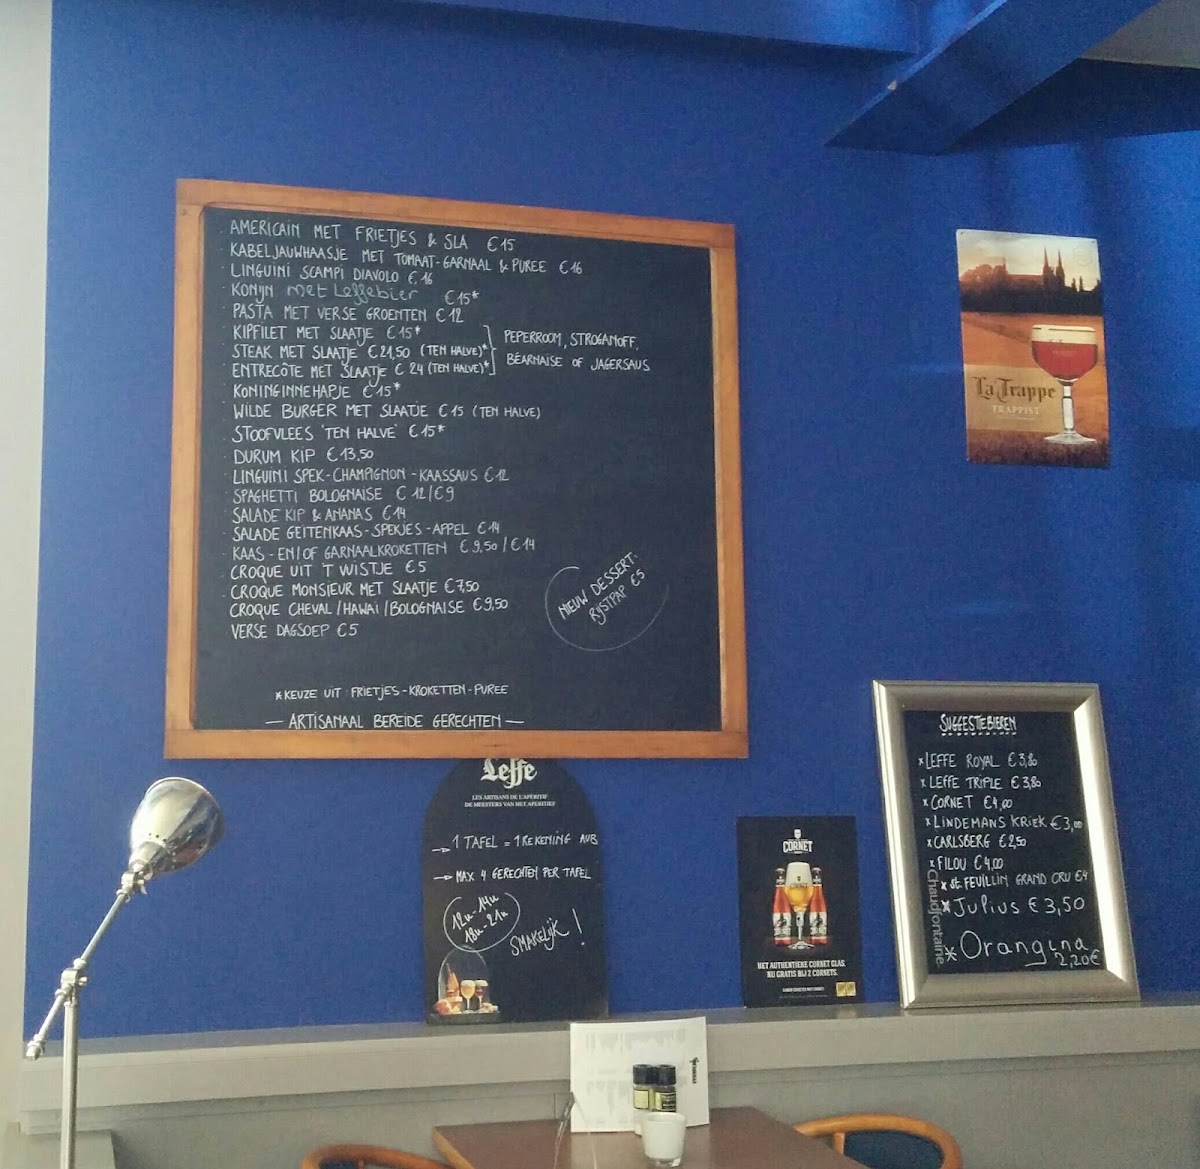 AMERICAIN MET FRIETJES & SLA €15
KABELJAUWHAASJE MET TOMAAT-GARNAAL & PUREE €16
LINGUINI SCAMPI DIAVOLO €16
KONIJN met Leffebier €15*
PASTA MET VERSE GROENTEN €12
KIPFILET MET SLAATJE €15*
STEAK MET SLAATJE €21,50 (TEN HALVE)*
ENTRECÔTE MET SLAATJE €24 (TEN HALVE)*
PEPERROOM, STROGANOFF,
BÉARNAISE OF JAGERSAUS
KONINGINNEHAPJE €15*
WILDE BURGER MET SLAATJE €15 (TEN HALVE)
STOOFVLEES 'TEN HALVE' €15*
DURUM KIP €13,50
LINGUINI SPEK-CHAMPIGNON-KAASSAUS €12
SPAGHETTI BOLOGNAISE €12/€9
SALADE KIP & ANANAS €14
SALADE GEITENKAAS-SPEKJES-APPEL €14
KAAS-EN/OF GARNAALKROKETTEN €9,50/€14
CROQUE UIT 'T WISTJE €5
CROQUE MONSIEUR MET SLAATJE €7,50
CROQUE CHEVAL/HAWAI/BOLOGNAISE €9,50
VERSE DAGSOEP €5
NIEUW DESSERT:
RIJSTPAP €5
*KEUZE UIT: FRIETJES-KROKETTEN-PUREE
— ARTISANAAL BEREIDE GERECHTEN —
La Trappe
TRAPPIST
Leffe
LES ARTISANS DE L'APÉRITIF
DE MEESTERS VAN HET APERITIEF
→ 1 TAFEL = 1 REKENING AUB
→ MAX 4 GERECHTEN PER TAFEL
12u-14u
18u-21u
SMAKELIJK!
CORNET
HET AUTHENTIEKE CORNET GLAS.
NU GRATIS BIJ 2 CORNETS.
SUGGESTIEBIEREN
*LEFFE ROYAL €3,80
*LEFFE TRIPLE €3,80
*CORNET €4,00
*LINDEMANS KRIEK €3,00
*CARLSBERG €2,50
*FILOU €4,00
*St. FEUILLIN GRAND CRU €4
*Julius €3,50
*Orangina
2,20€
Chaudfontaine